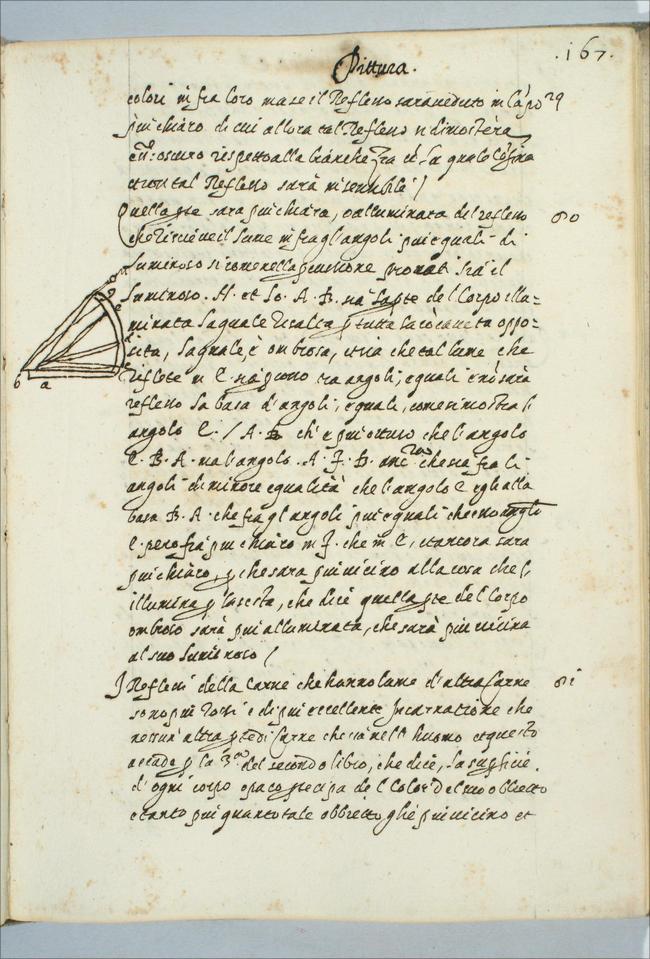 .167.
Pittura.
colori in fra loro ma se il Reflesso sarà veduto in cāpo 79
più chiaro di lui allora tal Reflesso si dimosterà
oscuro rispetto alla bianchezza cō la quale cōfina
tal Reflesso sarà insensibile /
Quella pte sara piu chiara, o alluminata del reflesso 80
che riceve il lume in fra gl'angoli piu eguali di
luminoso si come nella pntione sia il
luminoso . N . et lo . A . B . sia la pte del Corpo illu=
minata la quale risalta p tutta la cōcauità oppo=
sita, la quale, è ombrosa, e sia che tal lume che
riflete in E sia tra angoli, eguali nō sarà
reflesso la basa d'angoli, eguali, come si mostra l'
angolo E . / A . B ch' e piu ottuso che l'angolo
E . B . A . ma l'angolo . A . F . B . che sia fra li
angoli di minore equalità che l'angolo E egli alla
basa B . A . che fra gl'angoli piu eguali che esso anglo
E . pero fia piu chiaro in F . che in E, et ancora sara
piu chiaro, p che sara piu vicino alla cosa che l'
illumina p la sesta, che dice quella pte del Corpo
ombroso sarà piu alluminata, che sarà piu vicina
al suo luminoso /
I Reflessi della Carne che hanno lume d'altra Carne 81
sono piu rossi e di piu eccellente Incarnatione che
nessun' altra pte di Carne che sia nell' huomo et questo
accade p la 3.ª del secondo libro, che dice, la supficie
d'ogni corpo opaco pticipa del Color del suo obbietto
e tanto piu quanto tale obbietto gli è piu vicino et
b a